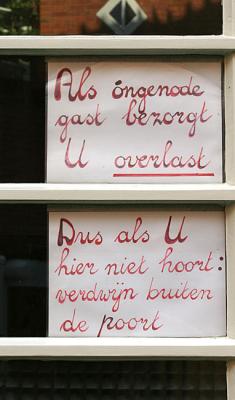 Als óngenode
gast bezorgt
U overlast
Dus als U
hier niet hoort:
verdwijn buiten
de poort